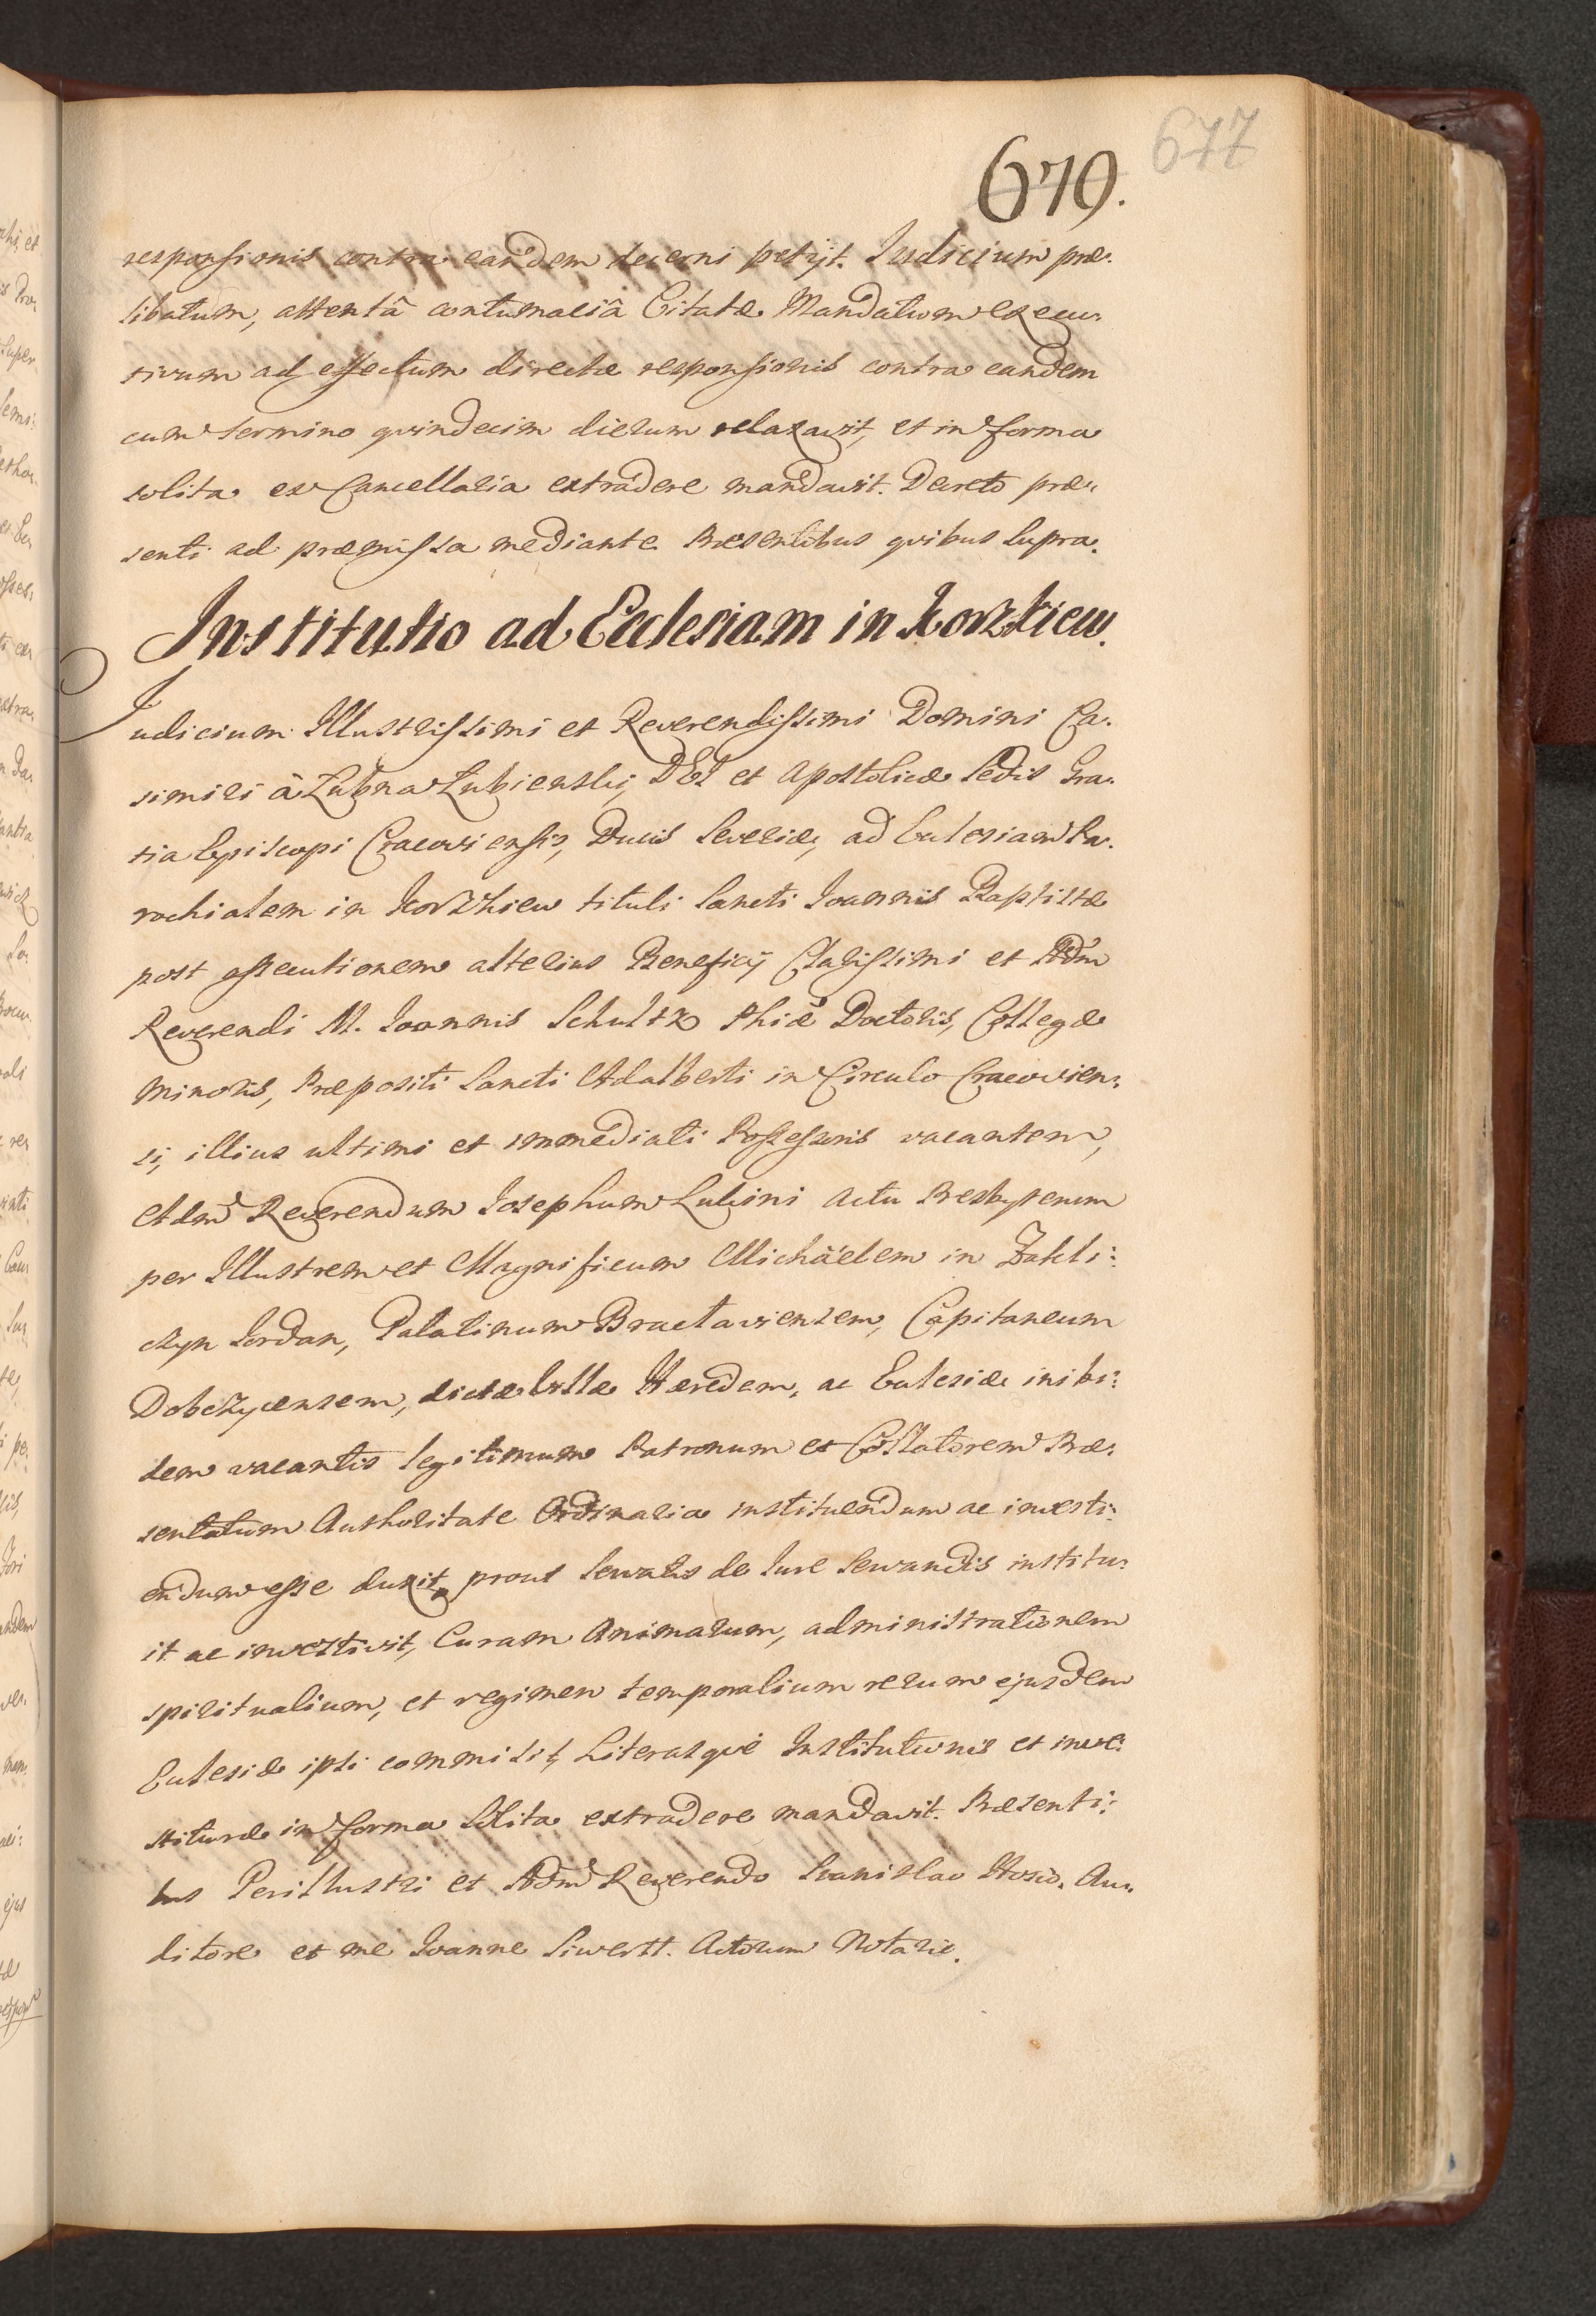 679.
677
responsionis contra eandem decerni petijt. Judicium præ:
libatum, attentâ contumaciâ Citatæ Mandatum execu:
tivum ad effectum directæ responsionis contra eandem
cum termino qvindecim dierum relaxavit, et in forma
solita ex Cancellaria extradere mandavit. Decreto præ:
senti ad præmissa mediante. Præsentibus qvibus supra.
Institutio ad Ecclesiam in Korzkiew.
Judicium Illustrissimi et Reverendissimi Domini Ca:
simiri à Łubna Łubienski, DEI et Apostolicæ Sedis Gra:
tia Episcopi Cracoviensis, Ducis Severiæ, ad Ecclesiam Pa:
rochialem in Korzkiew tituli Sancti Joannis Baptistæ
post assecutionem alterius Beneficij Clarissimi et Adm̃
Reverendi M. Joannis Schultz Phiæ Doctoris, Collegæ
Minoris, Præpositi Sancti Adalberti in Circulo Cracovien:
si, illius ultimi et immediati Possessoris vacantem,
Adm̃ Reverendum Josephum Lukini actu Presbyterum
per Illustrem et Magnificum Michäelem in Zakli:
czyn Jordan, Palatinum Bractaviensem, Capitaneum
Dobczycensem, dictæ Villæ Hæredem, ac Ecclesiæ inibi:
dem vacantis legitimum Patronum et Collatorem Præ:
sentatum Authoritate Ordinaria instituendum ac investi:
endum esse duxit, prout servatis de Jure servandis institu:
it ac investivit, Curam Animarum, administrationem
spiritualium, et regimen temporalium rerum ejusdem
Ecclesiæ ipsi commisit, Literasqve Institutionis et inve:
stituræ in forma solita extradere mandavit. Præsenti:
bus Perillustri et Adm̃ Reverendo Stanislao Hosio. Au:
ditore et me Joanne Siwertt. Actorum Notario.